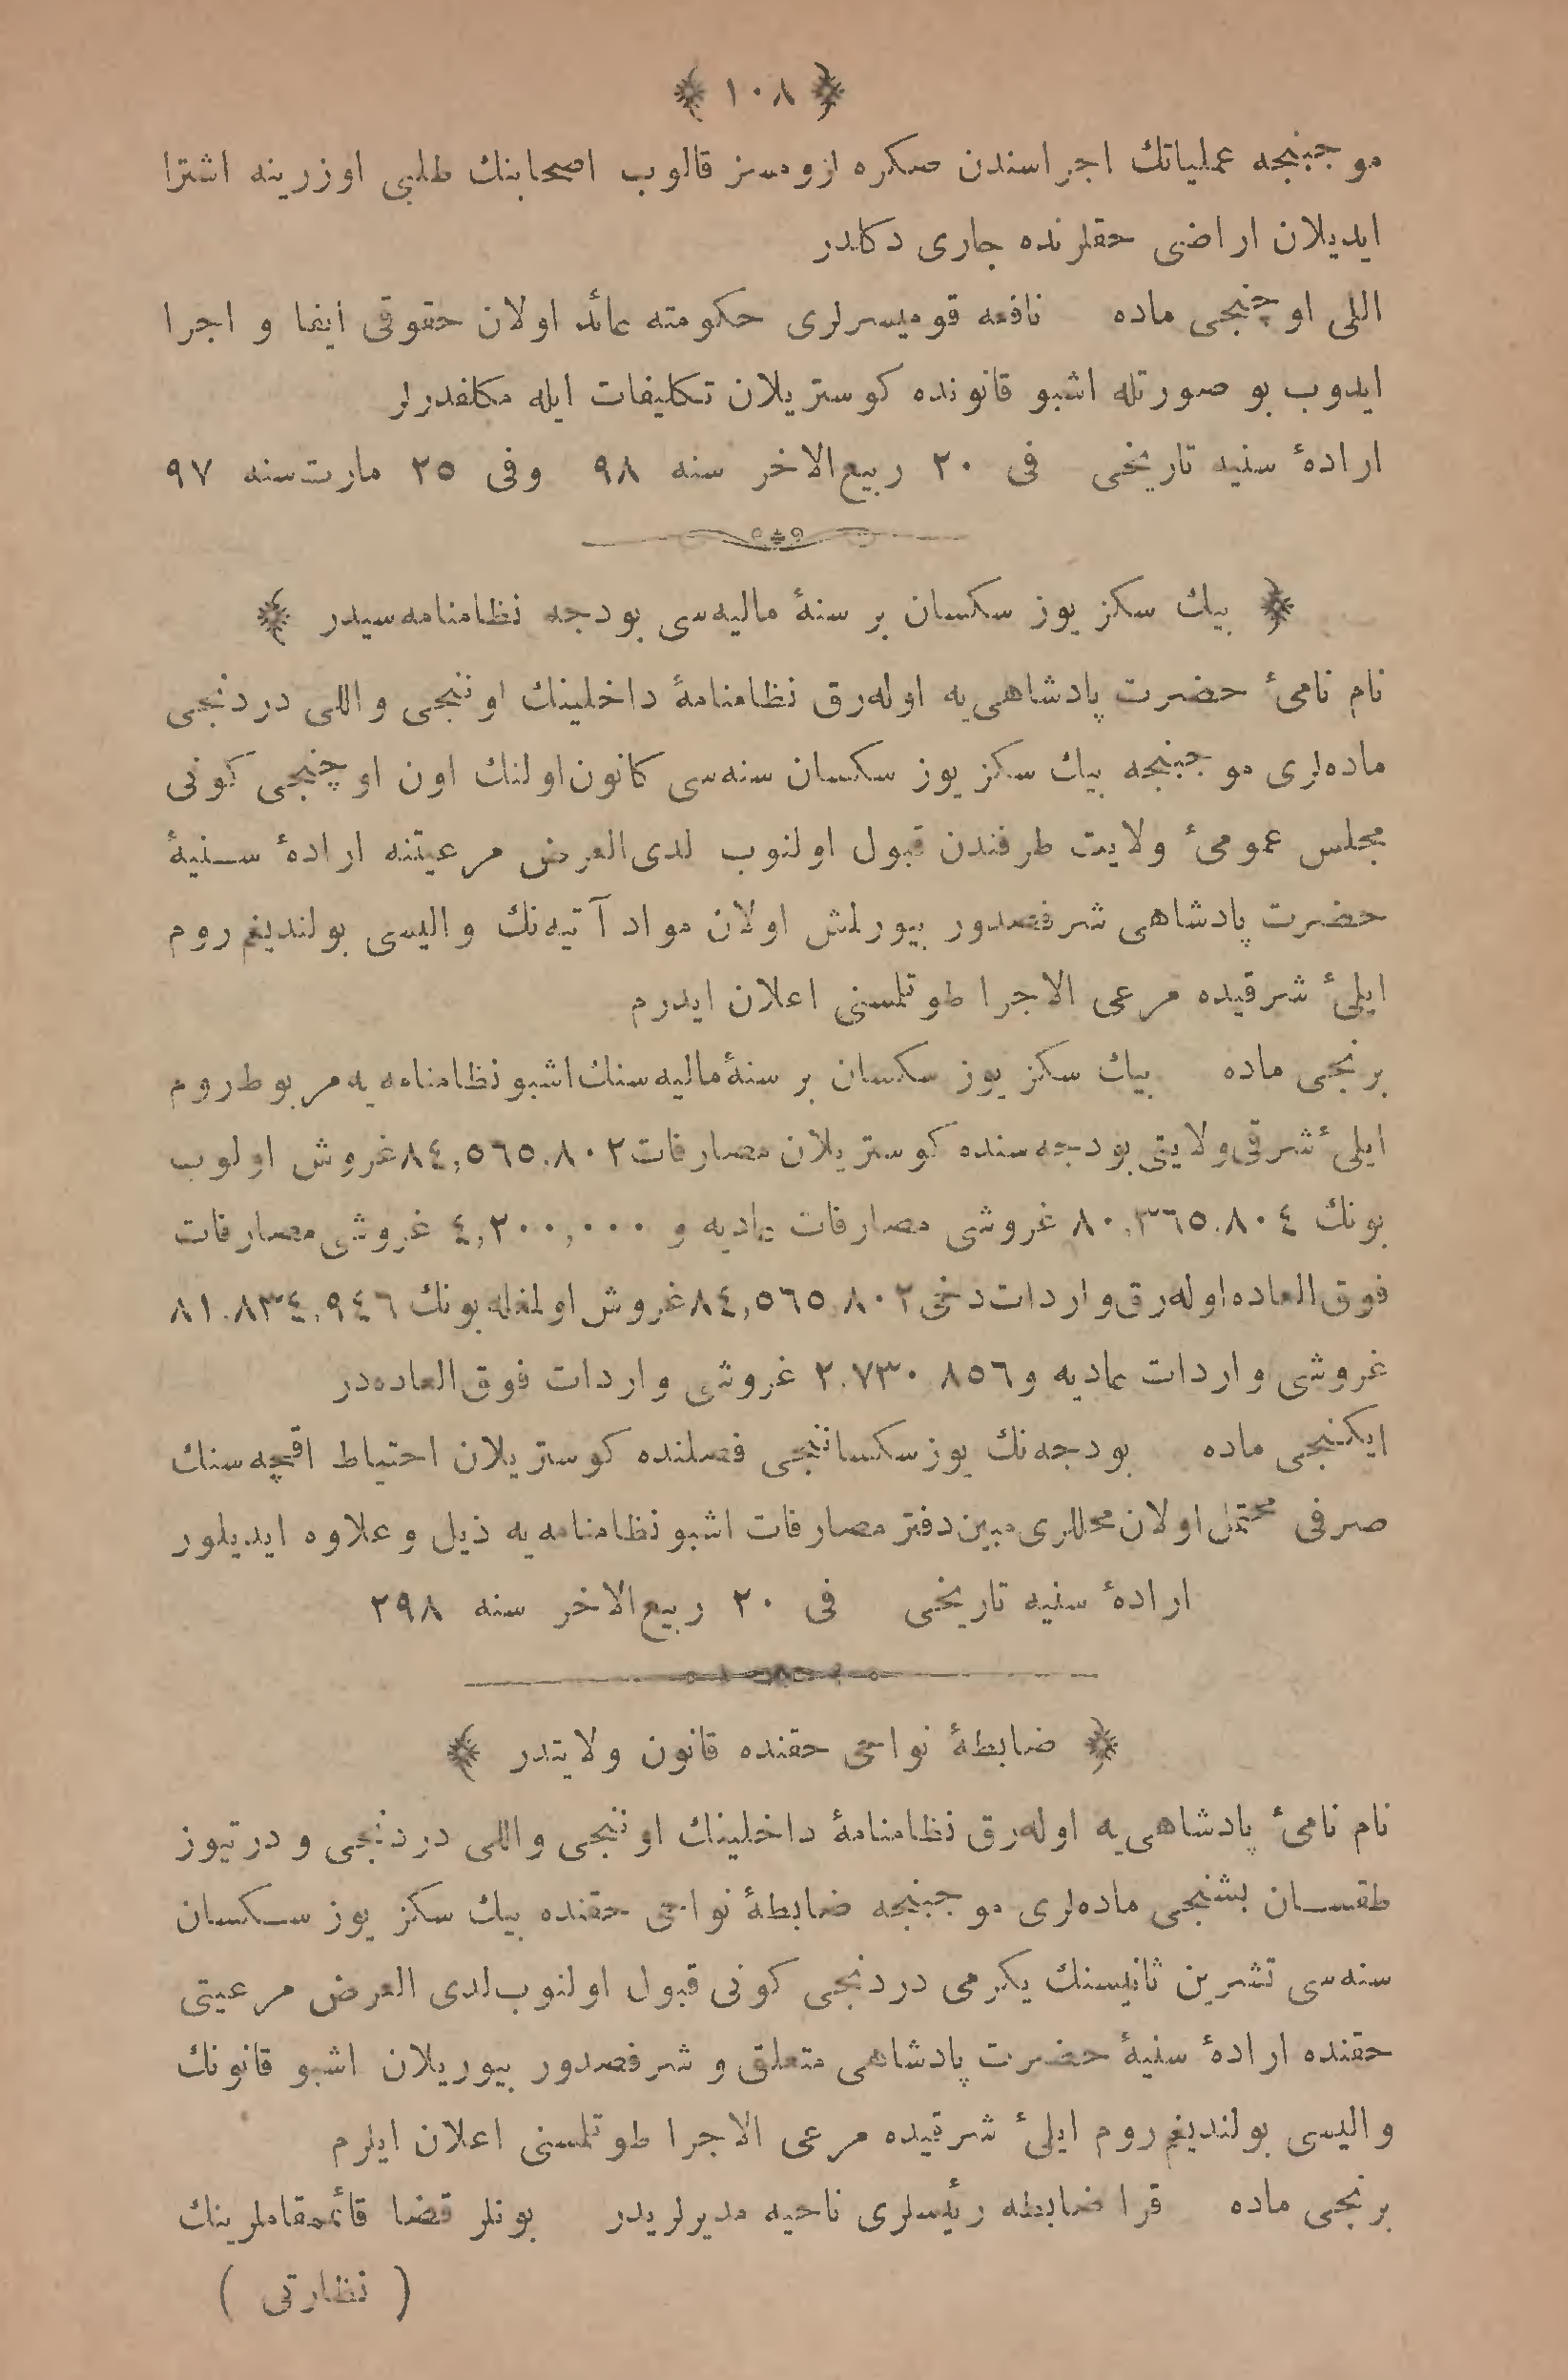 ﴿ ١٠٨ ﴾
موجبنجه عملیاتك اجراسندن صكره لزومسز قالوب اصحابنك طلبی اوزرینه اشترا
ایدیلان اراضی حقلرنده جاری دكلدر
اللی اوچنجی ماده نافعه قومیسرلری حكومته عائد اولان حقوقی ایفا و اجرا
ایدوب بو صورتله اشبو قانونده كوستریلان تكلیفات ایله مكلفدرلر
ارادهٔ سنیه تاریخی فی ٢٠ ربیع‌الاخر سنه ٩٨ وفی ٢٥ مارت‌سنه ٩٧
﴿ بیك سكز یوز سكسان بر سنهٔ مالیه‌سی بودجه نظامنامه‌سیدر ﴾
نام نامئ حضرت پادشاهی‌یه اوله‌رق نظامنامهٔ داخلینك اوننجی واللی دردنجی
ماده‌لری موجبنجه بیك سكز یوز سكسان سنه‌سی كانون‌اولنك اون اوچنجی كونی
مجلس عمومئ ولایت طرفندن قبول اولنوب لدی‌العرض مرعیتنه ارادهٔ سـنیهٔ
حضرت پادشاهی شرفصدور بیورلمش اولان مواد آتیه‌نك والیسی بولندیغم روم
ایلئ شرقیده مرعی الاجرا طوتلمسنی اعلان ایدرم
برنجی ماده بیك سكز یوز سكسان بر سنهٔ‌مالیه‌سنك‌اشبو نظامنامه یه‌مربوط‌روم
ایلئ شرقی‌ولایتی‌بودجه‌سنده كوستریلان مصارفات ٨٤,٥٦٥.٨٠٢ غروش اولوب
بونك ٨٠.٣٦٥.٨٠٤ غروشی مصارفات عادیه و ٤,٢٠٠,٠٠٠ غروشی‌مصارفات
فوق‌العاده‌اوله‌رق‌واردات‌دخی ٨٤,٥٦٥,٨٠٢ غروش‌اولمغله‌بونك ٨١.٨٣٤,٩٤٦
غروشی واردات عادیه و ٢.٧٣٠,٨٥٦ غروشی واردات فوق‌العاده‌در
ایكنجی ماده بودجه‌نك یوزسكساننجی فصلنده كوستریلان احتیاط اقچه‌سنك
صرفی محتمل‌اولان‌محللری‌مبین‌دفتر مصارفات اشبو نظامنامه‌یه ذیل و علاوه ایدیلور
ارادهٔ سنیه تاریخی فی ٢٠ ربیع‌الاخر سنه ٢٩٨
﴿ ضابطهٔ نواحی حقنده قانون ولایتدر ﴾
نام نامئ پادشاهی‌یه اوله‌رق نظامنامهٔ داخلینك اوننجی واللی دردنجی و درتیوز
طقسـان بشنجی ماده‌لری موجبنجه ضابطهٔ نواحی حقنده بیك سكز یوز سـكسان
سنه‌سی تشرین ثانیسنك یكرمی دردنجی كونی قبول اولنوب‌لدی العرض مرعیتی
حقنده ارادهٔ سنیهٔ حضرت پادشاهی متعلق و شرفصدور بیوریلان اشبو قانونك
والیسی بولندیغم روم ایلئ شرقیده مرعی الاجرا طوتلمسنی اعلان ایلرم
برنجی ماده قرا ضابطه رئیسلری ناحیه مدیرلریدر بونلر قضا قائممقاملرینك
( نظارتی )